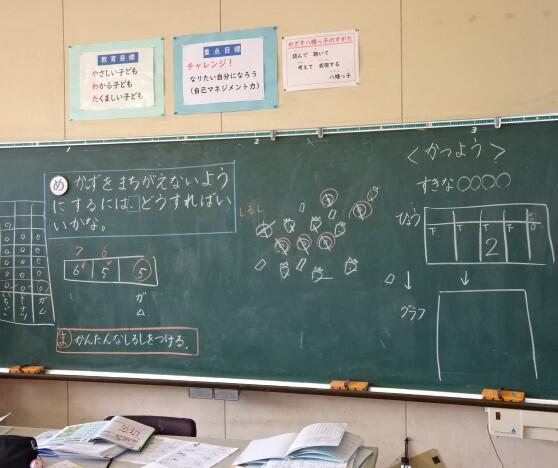 教育目標
やさしい子ども
わかる子ども
たくましい子ども
重点目標
チャレンジ！
なりたい自分になろう
(自己マネジメント力)
めざす八幡っ子のすがた
読んで 聴いて
考えて 表現する
八幡っ子
1
2
3
め かずをまちがえないよう
にするには、どうすればい
いかな。
7 6
6 5 5
ガム
ま かんたんなしるしをつける。
いちご
ドーナツ
ガム
しるし
<かつよう>
すきな○○○○
ひょう
T T 2 T T
グラフ